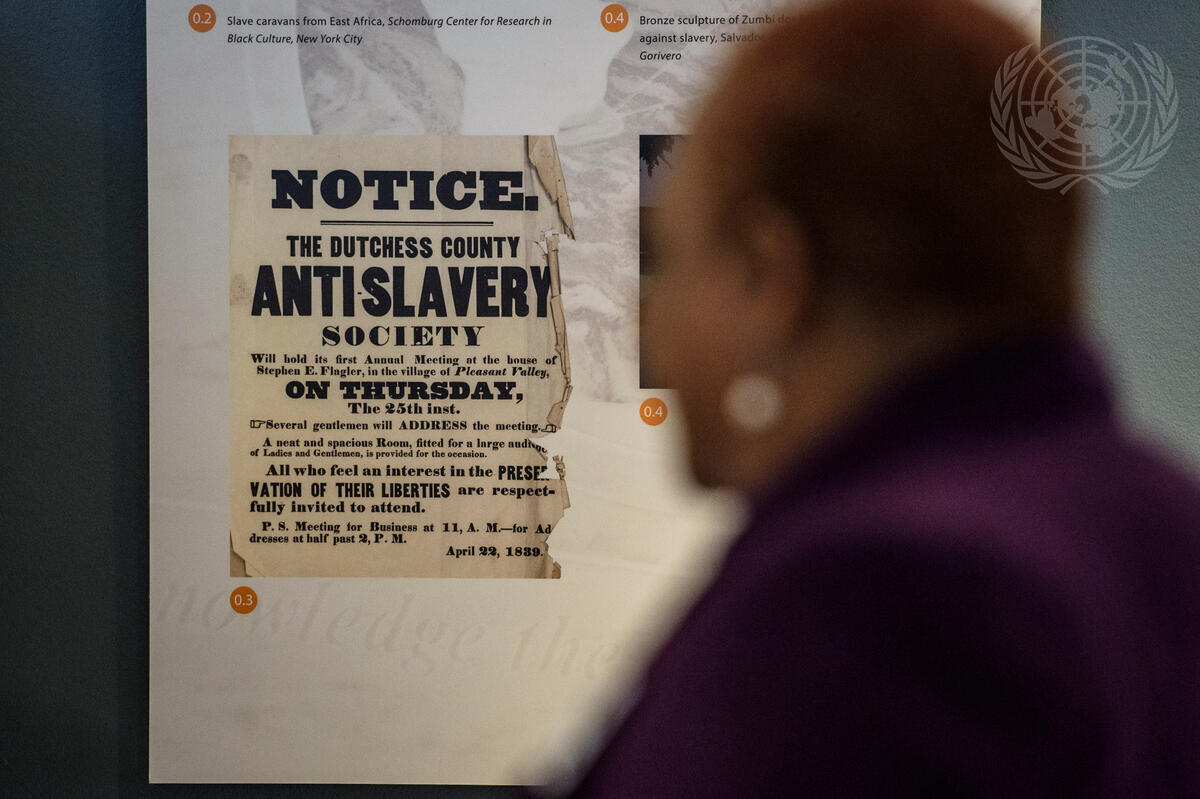 0.2
Slave caravans from East Africa, Schomburg Center for Research in
Black Culture, New York City
0.4
Bronze sculpture of Zumbi
against slavery, Salvador
Gorivero
NOTICE.
THE DUTCHESS COUNTY
ANTI-SLAVERY
SOCIETY
Will hold its first Annual Meeting at the house of
Stephen E. Flagler, in the village of Pleasant Valley,
ON THURSDAY,
The 25th inst.
☞Several gentlemen will ADDRESS the meeting.
A neat and spacious Room, fitted for a large
of Ladies and Gentlemen, is provided for the occasion.
All who feel an interest in the PRESER-
VATION OF THEIR LIBERTIES are respect-
fully invited to attend.
P. S. Meeting for Business at 11, A. M.—for Ad
dresses at half past 2, P. M.
April 22, 1839.
0.3
0.4
nowledge the